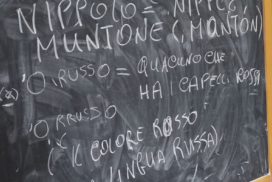 NIPPOLO =
MUNTIONE (MONTÓN)
'O RUSSO = QUACUNO CHE
HA I CAPELLI ROSSI
O RRUSSO
(IL COLORE ROSSO
LINGUA RUSSA)